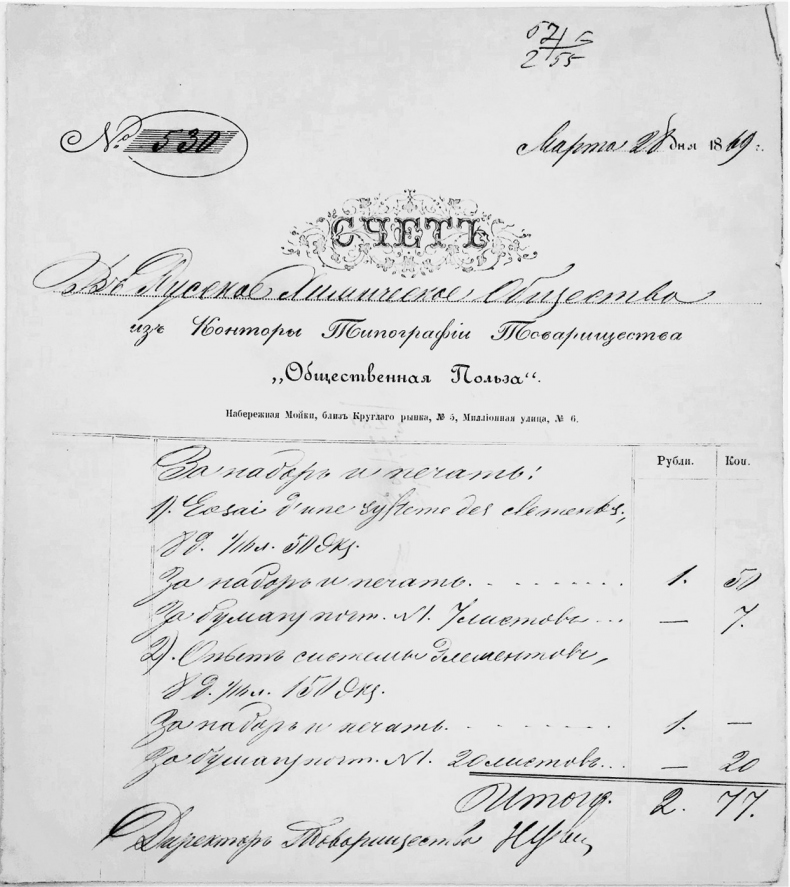 57
2 55
№ 530
Марта 28 дня 1869 г.
СЧЕТЪ
Въ Русское Химическое Общество
изъ Конторы Типографіи Товарищества
„Общественная Польза“.
Набережная Мойки, близъ Круглаго рынка, № 5, Милліонная улица, № 6.
Рубли. Коп.
За наборъ и печать:
1). Essai d'une systeme des elements,
8 д. 1/16 л. 50 Экз.
За наборъ и печать. 1. 50
За бумагу почт. №1. 7 листовъ... — 7.
2). Опытъ системы Элементовъ,
8 д. 1/16 л. 150 Экз.
За наборъ и печать. 1. —
За бумагу почт. №1. 20 листовъ... — 20
Итого. 2. 77.
Директоръ Товарищества